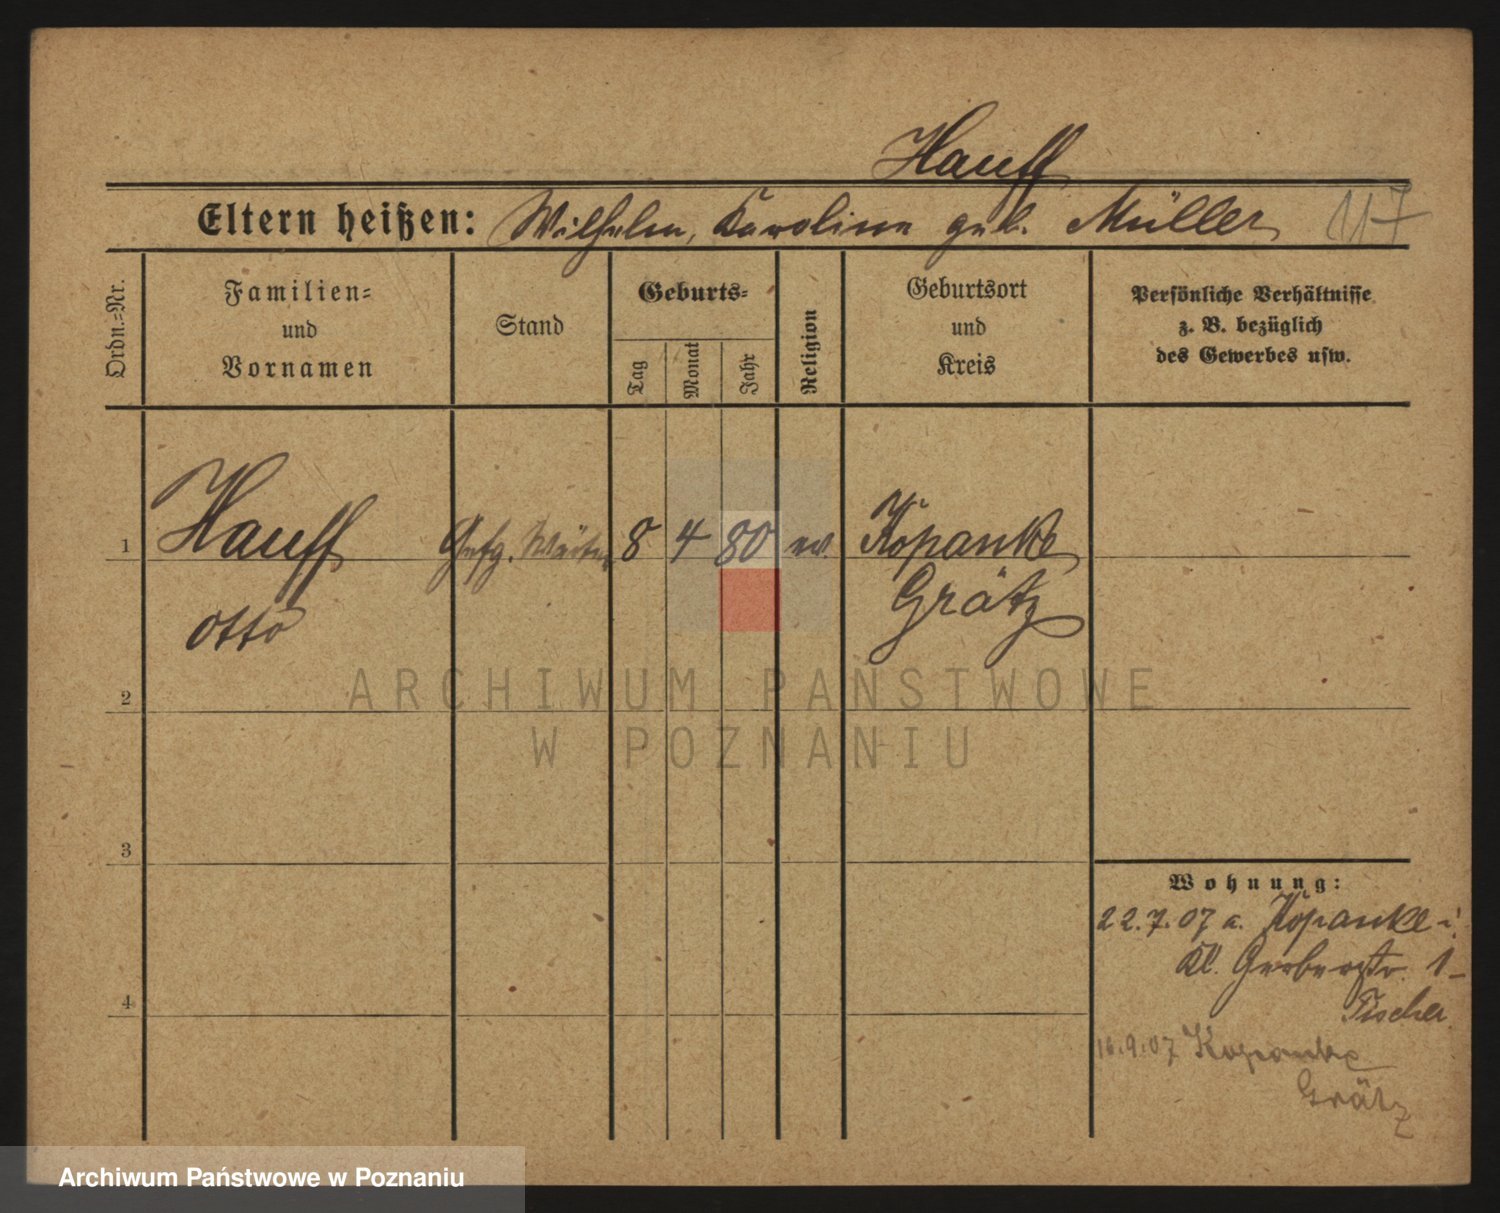 Hauff
Eltern heißen: Wilhelm, Karoline geb. Müller 117
Ordn.=Nr.
Familien=
und
Vornamen
Stand
Geburts=
Tag
Monat
Jahr
Religion
Geburtsort
und
Kreis
Persönliche Verhältnisse
z. B. bezüglich
des Gewerbes usw.
1 Hauff 8 4 80 ev. Kopanke
Grätz
Otto
2
ARCHIWUM PAŃSTWOWE
W POZNANIU
3
Wohnung:
22.7.07 a. Kopanke
Kl. Gerberstr. 1
Fischer
4
16.9.07 Kopanke
Grätz
Archiwum Państwowe w Poznaniu